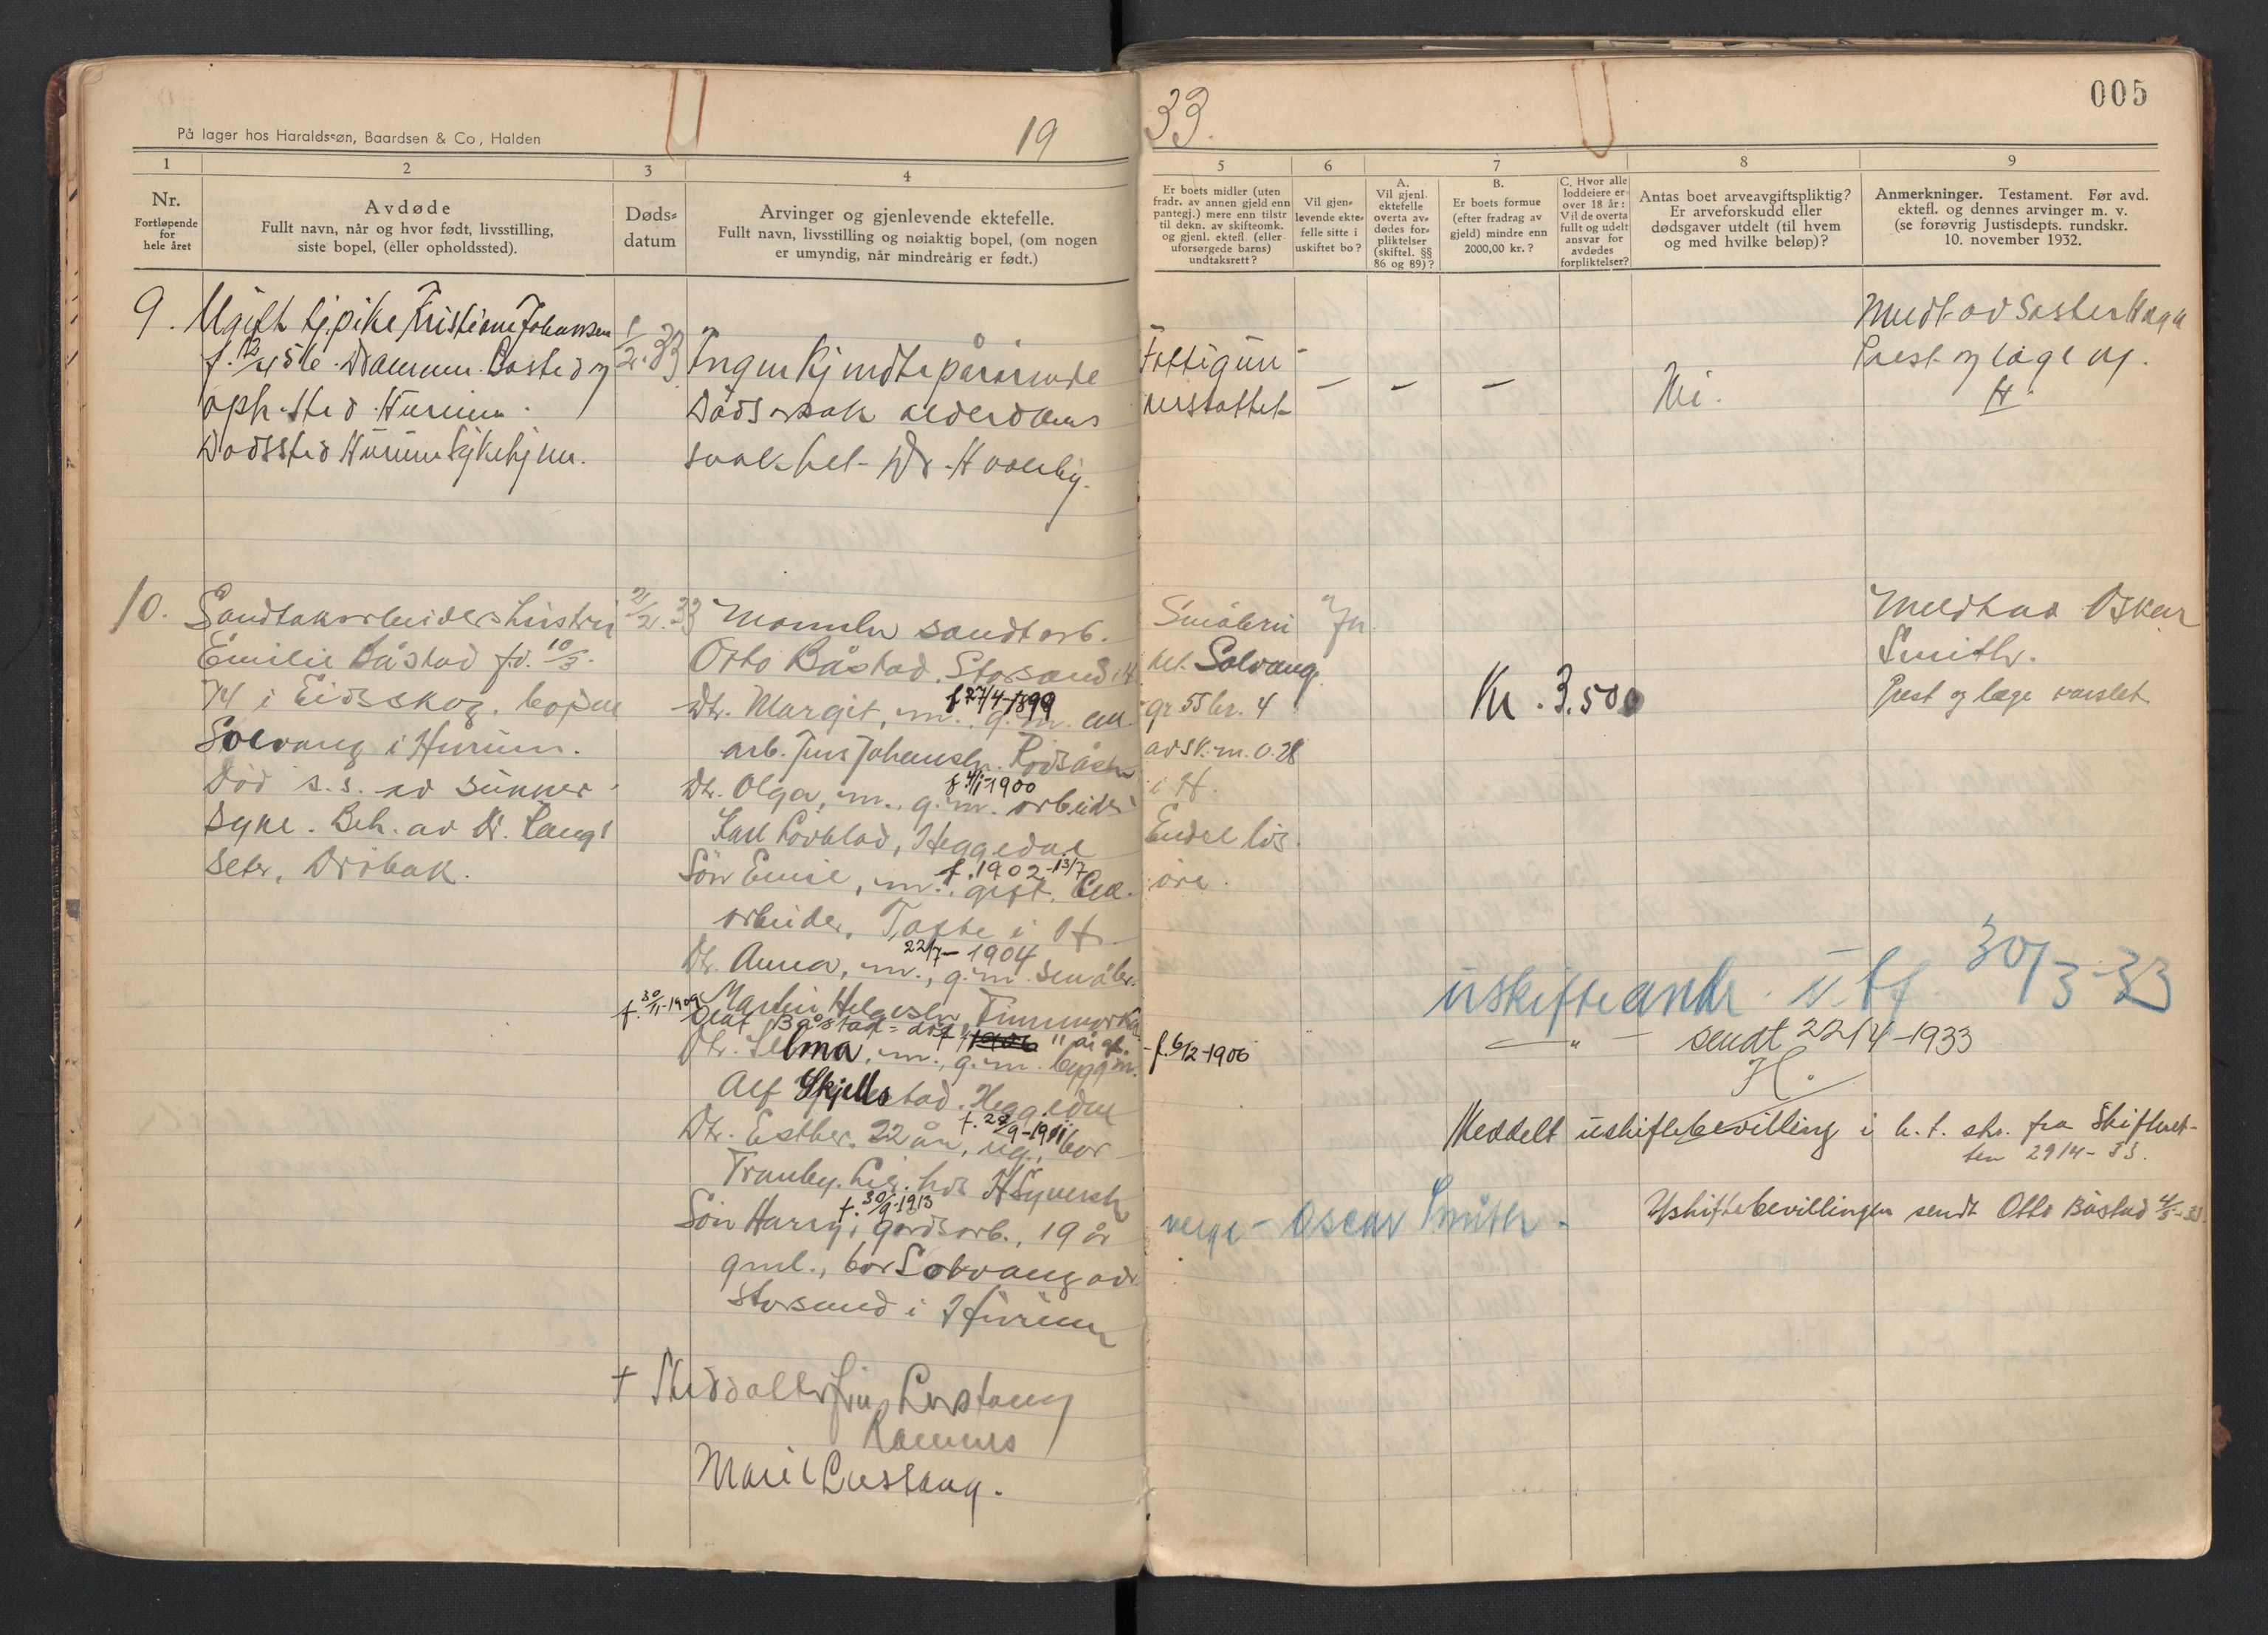 På lager hos Haraldssøn, Baardsen & Co, Halden
19
33.
005
1
2
3
4
5
6
7
8
9
Nr.
Fortløpende
for
hele året
Avdøde
Fullt navn, når og hvor født, livsstilling,
siste bopel, (eller opholdssted).
Døds-
datum
Arvinger og gjenlevende ektefelle.
Fullt navn, livsstilling og nøiaktig bopel, (om nogen
er umyndig, når mindreårig er født.)
Er boets midler (uten
fradr. av annen gjeld enn
pantegj.) mere enn tilstr
til dekn. av skifteomk.
og gjenl. ektefl. (eller
uforsørgede barns)
undtaksrett?
Vil gjen-
levende ekte-
felle sitte i
uskiftet bo?
A.
Vil gjenl.
ektefelle
overta av-
dødes for-
pliktelser
(skiftel. §§
86 og 89)?
B.
Er boets formue
(efter fradrag av
gjeld) mindre enn
2000,00 kr.?
C. Hvor alle
loddeiere er
over 18 år:
Vil de overta
fullt og udelt
ansvar for
avdødes
forpliktelser?
Antas boet arveavgiftspliktig?
Er arveforskudd eller
dødsgaver utdelt (til hvem
og med hvilke beløp)?
Anmerkninger. Testament. Før avd.
ektefl. og dennes arvinger m. v.
(se forøvrig Justisdepts. rundskr.
10. november 1932.
9. Ugift tj.pike Kristiane Johansen
f. 12/4 56 Drammen. Bosted og
oph.sted Hurum.
Dødssted Hurum Sykehjem.
1/2.33
Ingen kjendte pårørende
Dødsårsak alderdoms
svakhet - Dr. Hvalby.
Fattigun
derstøttet
– – –
Nei.
Meldt av Søster Haga
Prest og læge uf.
H.
10. Sandtakarbeiders hustru
Emilie Båstad fd. 10/3.
74 i Eidsskog. bopæl
Solvang i Hurum.
Død s.s. av sukker
syke. Beh. av Dr. Lang
seter, Drøbak.
2/2.33
Mannen sandt.arb.
Otto Båstad. Storsand i H
f 27/4-1899
Dtr. Margit, m., g.m. an.
arb. Jens Johansen. Rødsåsen
f 4/1-1900
Dtr. Olga, m., g.m. arbeider
Karl Løvblad, Heggedal
f. 1902-13/7
Søn Emil, m., gift. Cel.
arbeider, Tofte i H.
22/7-1904
Dtr. Anna, m., g.m. småbr.
Martin Helgesen Finnmarka
f. 30/11-1909 Olaf Båstad = død 1906 11 år gl.
Dtr. Selma, m., g.m. bygg.m.
- f. 6/2-1906
Alf Skjellestad. Heggedal
f. 29/9-1911
Dtr. Esther. 22 år, ug., bor
Tranby. Lier. hos H Syversen
f. 30/9-1913
Søn Harry, gårdsarb., 19 år
gml., bor Solvang adr.
Storsand i Hurum
+ Steddatter fru Lerstang
Ramnes
Marie Lerstang.
Småbru
ket Solvang
gr 55 br. 4
av sk.m. 0.28
i H.
Endel løs
øre.
Ja.
Kr. 3.500
Meldt av Oskar
Smith.
Prest og læge varslet.
uskifteandr. utf. 30/3-33
— " — sendt 22/4-1933
H.
Meddelt uskiftebevilling i h.t. skr. fra Skifteret-
ten 29/4-33.
Uskiftebevillingen sendt Otto Båstad 4/5-33.
verge - Oscar Smith.